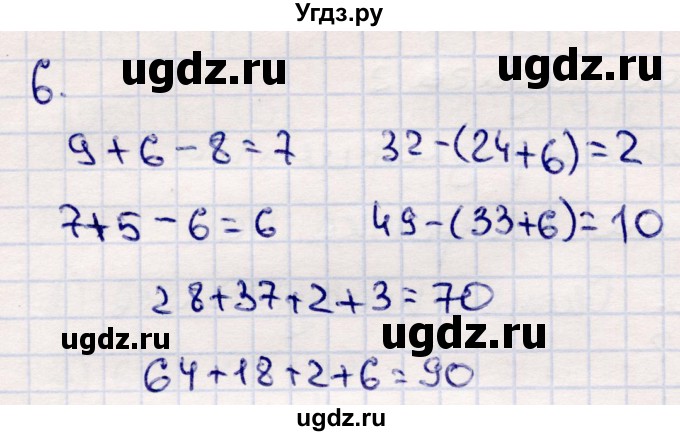 Угдз.ру
ugdz.ru ugdz.ru
6.
9+6-8=7 32-(24+6)=2
7+5-6=6 49-(33+6)=10
28+37+2+3=70
ugdz.ru ugdz.ru
64+18+2+6=90
ugdz.ru